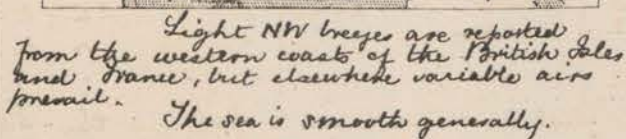 Light NW breezes are reported
from the western coasts of the British Isles
and France, but elsewhere variable airs
prevail.
The sea is smooth generally.